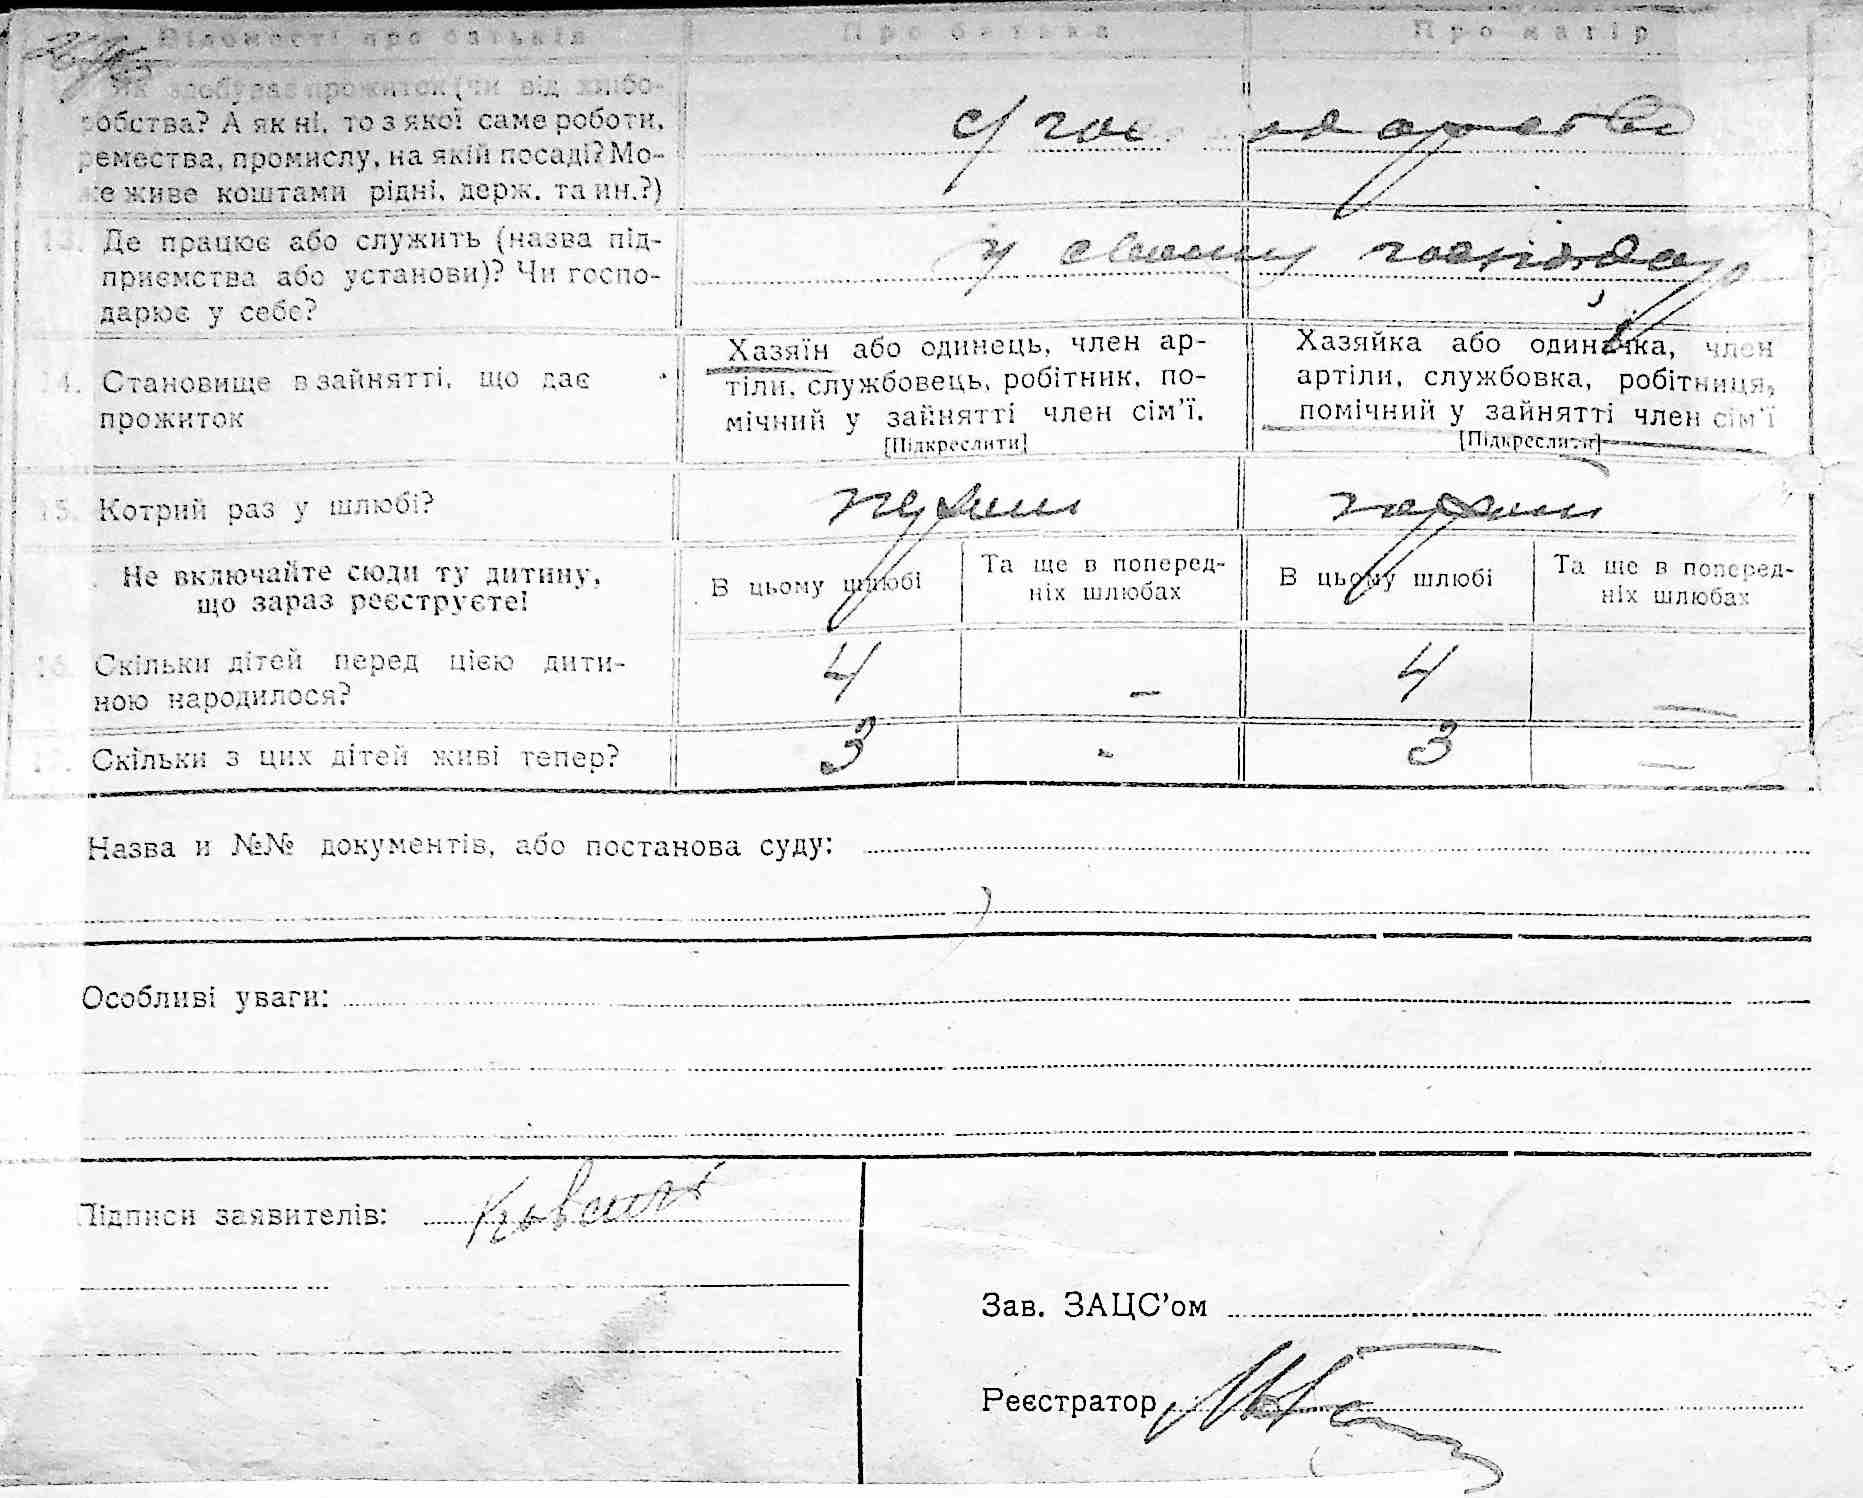 Відомості про батьків Про батька Про матір
Як здобуває прожиток (чи від хлібо-
робства? А як ні, то з якої саме роботи,
ремества, промислу, на якій посаді? Мо-
же живе коштами рідні, держ. та ин.?)
с/господарство
13. Де працює або служить (назва під-
приємства або установи)? Чи госпо-
дарює у себе?
у своому
14. Становище в зайнятті, що дає
прожиток
Хазяїн або одинець, член ар-
тіли, службовець, робітник, по-
мічний у зайнятті член сім'ї.
[Підкреслити]
Хазяйка або одиначка, член
артіли, службовка, робітниця,
помічний у зайнятті член сім'ї
[Підкреслити]
15. Котрий раз у шлюбі? перший перший
Не включайте сюди ту дитину,
що зараз реєструєте!
В цьому шлюбі
Та ще в поперед-
ніх шлюбах
В цьому шлюбі
Та ще в поперед-
ніх шлюбах
16. Скільки дітей перед цією дити-
ною народилося?
4 – 4 –
17. Скільки з цих дітей живі тепер? 3 - 3 –
Назва и №№ документів, або постанова суду:
Особливі уваги:
Підписи заявителів:
Зав. ЗАЦС'ом
Реєстратор